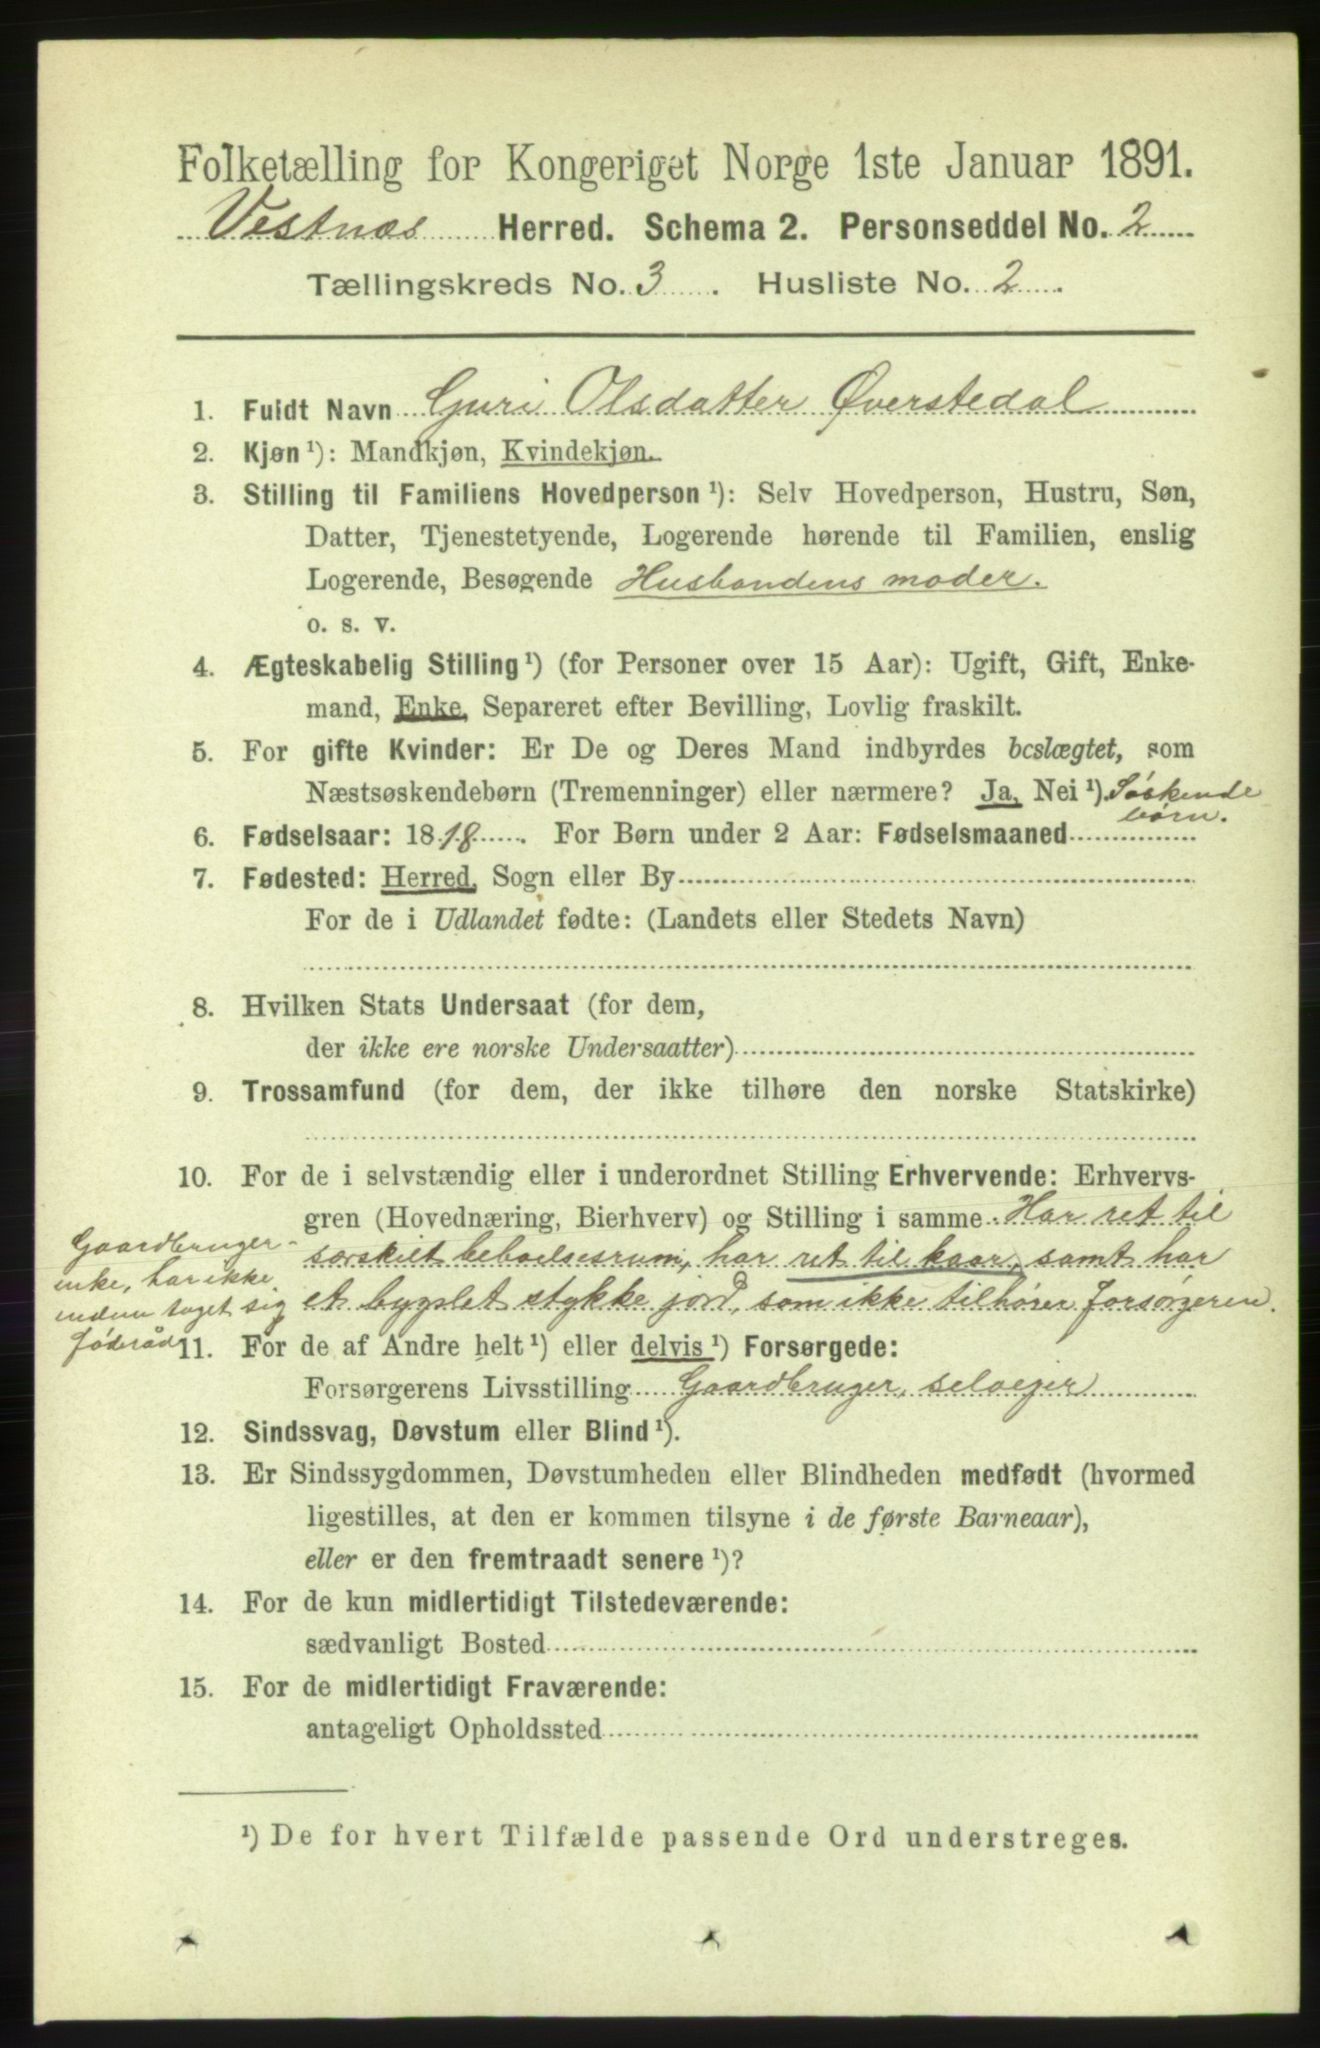 Folketælling for Kongeriget Norge 1ste Januar 1891.
Vestnæs Herred. Schema 2. Personseddel No. 2
Tællingskreds No. 3. Husliste No. 2.
1. Fuldt Navn Guri Olsdatter Øverstedal
2. Kjøn ¹): Mandkjøn, Kvindekjøn.
3. Stilling til Familiens Hovedperson ¹): Selv Hovedperson, Hustru, Søn,
Datter, Tjenestetyende, Logerende hørende til Familien, enslig
Logerende, Besøgende Husbondens moder.
o. s. v.
4. Ægteskabelig Stilling ¹) (for Personer over 15 Aar): Ugift, Gift, Enke-
mand, Enke, Separeret efter Bevilling, Lovlig fraskilt.
5. For gifte Kvinder: Er De og Deres Mand indbyrdes beslægtet, som
Næstsøskendebørn (Tremenninger) eller nærmere? Ja, Nei ¹). Søskende
børn.
6. Fødselsaar: 1818. For Børn under 2 Aar: Fødselsmaaned
7. Fødested: Herred, Sogn eller By
For de i Udlandet fødte: (Landets eller Stedets Navn)
8. Hvilken Stats Undersaat (for dem,
der ikke ere norske Undersaatter)
9. Trossamfund (for dem, der ikke tilhøre den norske Statskirke)
10. For de i selvstændig eller i underordnet Stilling Erhvervende: Erhvervs-
gren (Hovednæring, Bierhverv) og Stilling i samme Har ret til
særskilt beboelsesrum, har ret til kaar, samt har
et bygslet stykke jord, som ikke tilhører forsørgeren.
Gaardbruger-
enke, har ikke
endnu taget sig
føderåd
11. For de af Andre helt ¹) eller delvis ¹) Forsørgede:
Forsørgerens Livsstilling Gaardbruger, selveier
12. Sindssvag, Døvstum eller Blind ¹).
13. Er Sindssygdommen, Døvstumheden eller Blindheden medfødt (hvormed
ligestilles, at den er kommen tilsyne i de første Barneaar),
eller er den fremtraadt senere ¹)?
14. For de kun midlertidigt Tilstedeværende:
sædvanligt Bosted
15. For de midlertidigt Fraværende:
antageligt Opholdssted
¹) De for hvert Tilfælde passende Ord understreges.